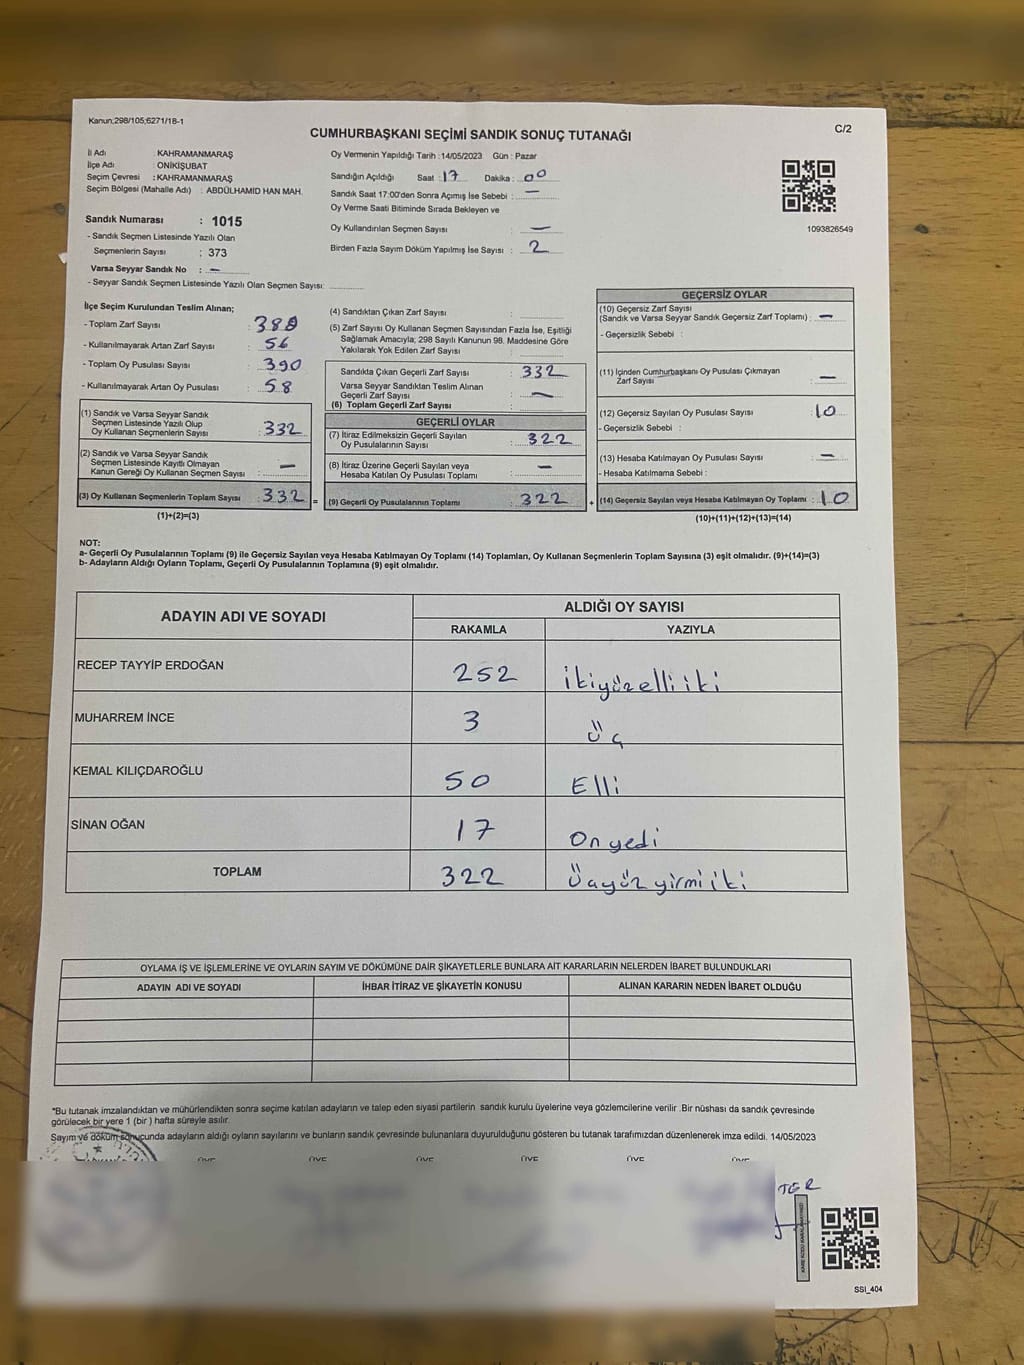 Kanun;298/105;6271/18-1
CUMHURBAŞKANI SEÇİMİ SANDIK SONUÇ TUTANAĞI
C/2
İl Adı : KAHRAMANMARAŞ
İlçe Adı : ONİKİŞUBAT
Seçim Çevresi : KAHRAMANMARAŞ
Seçim Bölgesi (Mahalle Adı) : ABDÜLHAMİD HAN MAH.
Sandık Numarası : 1015
- Sandık Seçmen Listesinde Yazılı Olan
Seçmenlerin Sayısı : 373
Varsa Seyyar Sandık No : —
- Seyyar Sandık Seçmen Listesinde Yazılı Olan Seçmen Sayısı:
Oy Vermenin Yapıldığı Tarih :14/05/2023 Gün : Pazar
Sandığın Açıldığı Saat : 17 Dakika : 00
Sandık Saat 17:00'den Sonra Açımış İse Sebebi : —
Oy Verme Saati Bitiminde Sırada Bekleyen ve
Oy Kullandırılan Seçmen Sayısı : —
Birden Fazla Sayım Döküm Yapılmış İse Sayısı : 2
1093826549
İlçe Seçim Kurulundan Teslim Alınan;
- Toplam Zarf Sayısı :
- Kullanılmayarak Artan Zarf Sayısı : 56
- Toplam Oy Pusulası Sayısı : 390
- Kullanılmayarak Artan Oy Pusulası : 58
(1) Sandık ve Varsa Seyyar Sandık
Seçmen Listesinde Yazılı Olup
Oy Kullanan Seçmenlerin Sayısı : 332
(2) Sandık ve Varsa Seyyar Sandık
Seçmen Listesinde Kayıtlı Olmayan
Kanun Gereği Oy Kullanan Seçmen Sayısı : —
(3) Oy Kullanan Seçmenlerin Toplam Sayısı : 332 =
(1)+(2)=(3)
(4) Sandıktan Çıkan Zarf Sayısı :
(5) Zarf Sayısı Oy Kullanan Seçmen Sayısından Fazla İse, Eşitliği
Sağlamak Amacıyla; 298 Sayılı Kanunun 98. Maddesine Göre
Yakılarak Yok Edilen Zarf Sayısı :
Sandıkta Çıkan Geçerli Zarf Sayısı : 332
Varsa Seyyar Sandıktan Teslim Alınan
Geçerli Zarf Sayısı : —
(6) Toplam Geçerli Zarf Sayısı :
GEÇERLİ OYLAR
(7) İtiraz Edilmeksizin Geçerli Sayılan
Oy Pusulalarının Sayısı : 322
(8) İtiraz Üzerine Geçerli Sayılan veya
Hesaba Katılan Oy Pusulası Toplamı : —
(9) Geçerli Oy Pusulalarının Toplamı : 322 +
GEÇERSİZ OYLAR
(10) Geçersiz Zarf Sayısı
(Sandık ve Varsa Seyyar Sandık Geçersiz Zarf Toplamı) : —
- Geçersizlik Sebebi :
(11) İçinden Cumhurbaşkanı Oy Pusulası Çıkmayan
Zarf Sayısı : —
(12) Geçersiz Sayılan Oy Pusulası Sayısı : 10
- Geçersizlik Sebebi :
(13) Hesaba Katılmayan Oy Pusulası Sayısı : —
- Hesaba Katılmama Sebebi :
(14) Geçersiz Sayılan veya Hesaba Katılmayan Oy Toplamı : 10
(10)+(11)+(12)+(13)=(14)
NOT:
a- Geçerli Oy Pusulalarının Toplamı (9) ile Geçersiz Sayılan veya Hesaba Katılmayan Oy Toplamı (14) Toplamları, Oy Kullanan Seçmenlerin Toplam Sayısına (3) eşit olmalıdır. (9)+(14)=(3)
b- Adayların Aldığı Oyların Toplamı, Geçerli Oy Pusulalarının Toplamına (9) eşit olmalıdır.
ADAYIN ADI VE SOYADI
ALDIĞI OY SAYISI
RAKAMLA YAZIYLA
RECEP TAYYİP ERDOĞAN 252 ikiyüzelliiki
MUHARREM İNCE 3 Üç
KEMAL KILIÇDAROĞLU 50 Elli
SİNAN OĞAN 17 Onyedi
TOPLAM 322 Üçyüz yirmi iki
OYLAMA İŞ VE İŞLEMLERİNE VE OYLARIN SAYIM VE DÖKÜMÜNE DAİR ŞİKAYETLERLE BUNLARA AİT KARARLARIN NELERDEN İBARET BULUNDUKLARI
ADAYIN ADI VE SOYADI İHBAR İTİRAZ VE ŞİKAYETİN KONUSU ALINAN KARARIN NEDEN İBARET OLDUĞU
"Bu tutanak imzalandıktan ve mühürlendikten sonra seçime katılan adayların ve talep eden siyasi partilerin sandık kurulu üyelerine veya gözlemcilerine verilir .Bir nüshası da sandık çevresinde
görülecek bir yere 1 (bir ) hafta süreyle asılır.
Sayım ve döküm sonucunda adayların aldığı oyların sayılarını ve bunların sandık çevresinde bulunanlara duyurulduğunu gösteren bu tutanak tarafımızdan düzenlenerek imza edildi. 14/05/2023
ÜYE ÜYE ÜYE ÜYE ÜYE ÜYE
TER
SSI_404